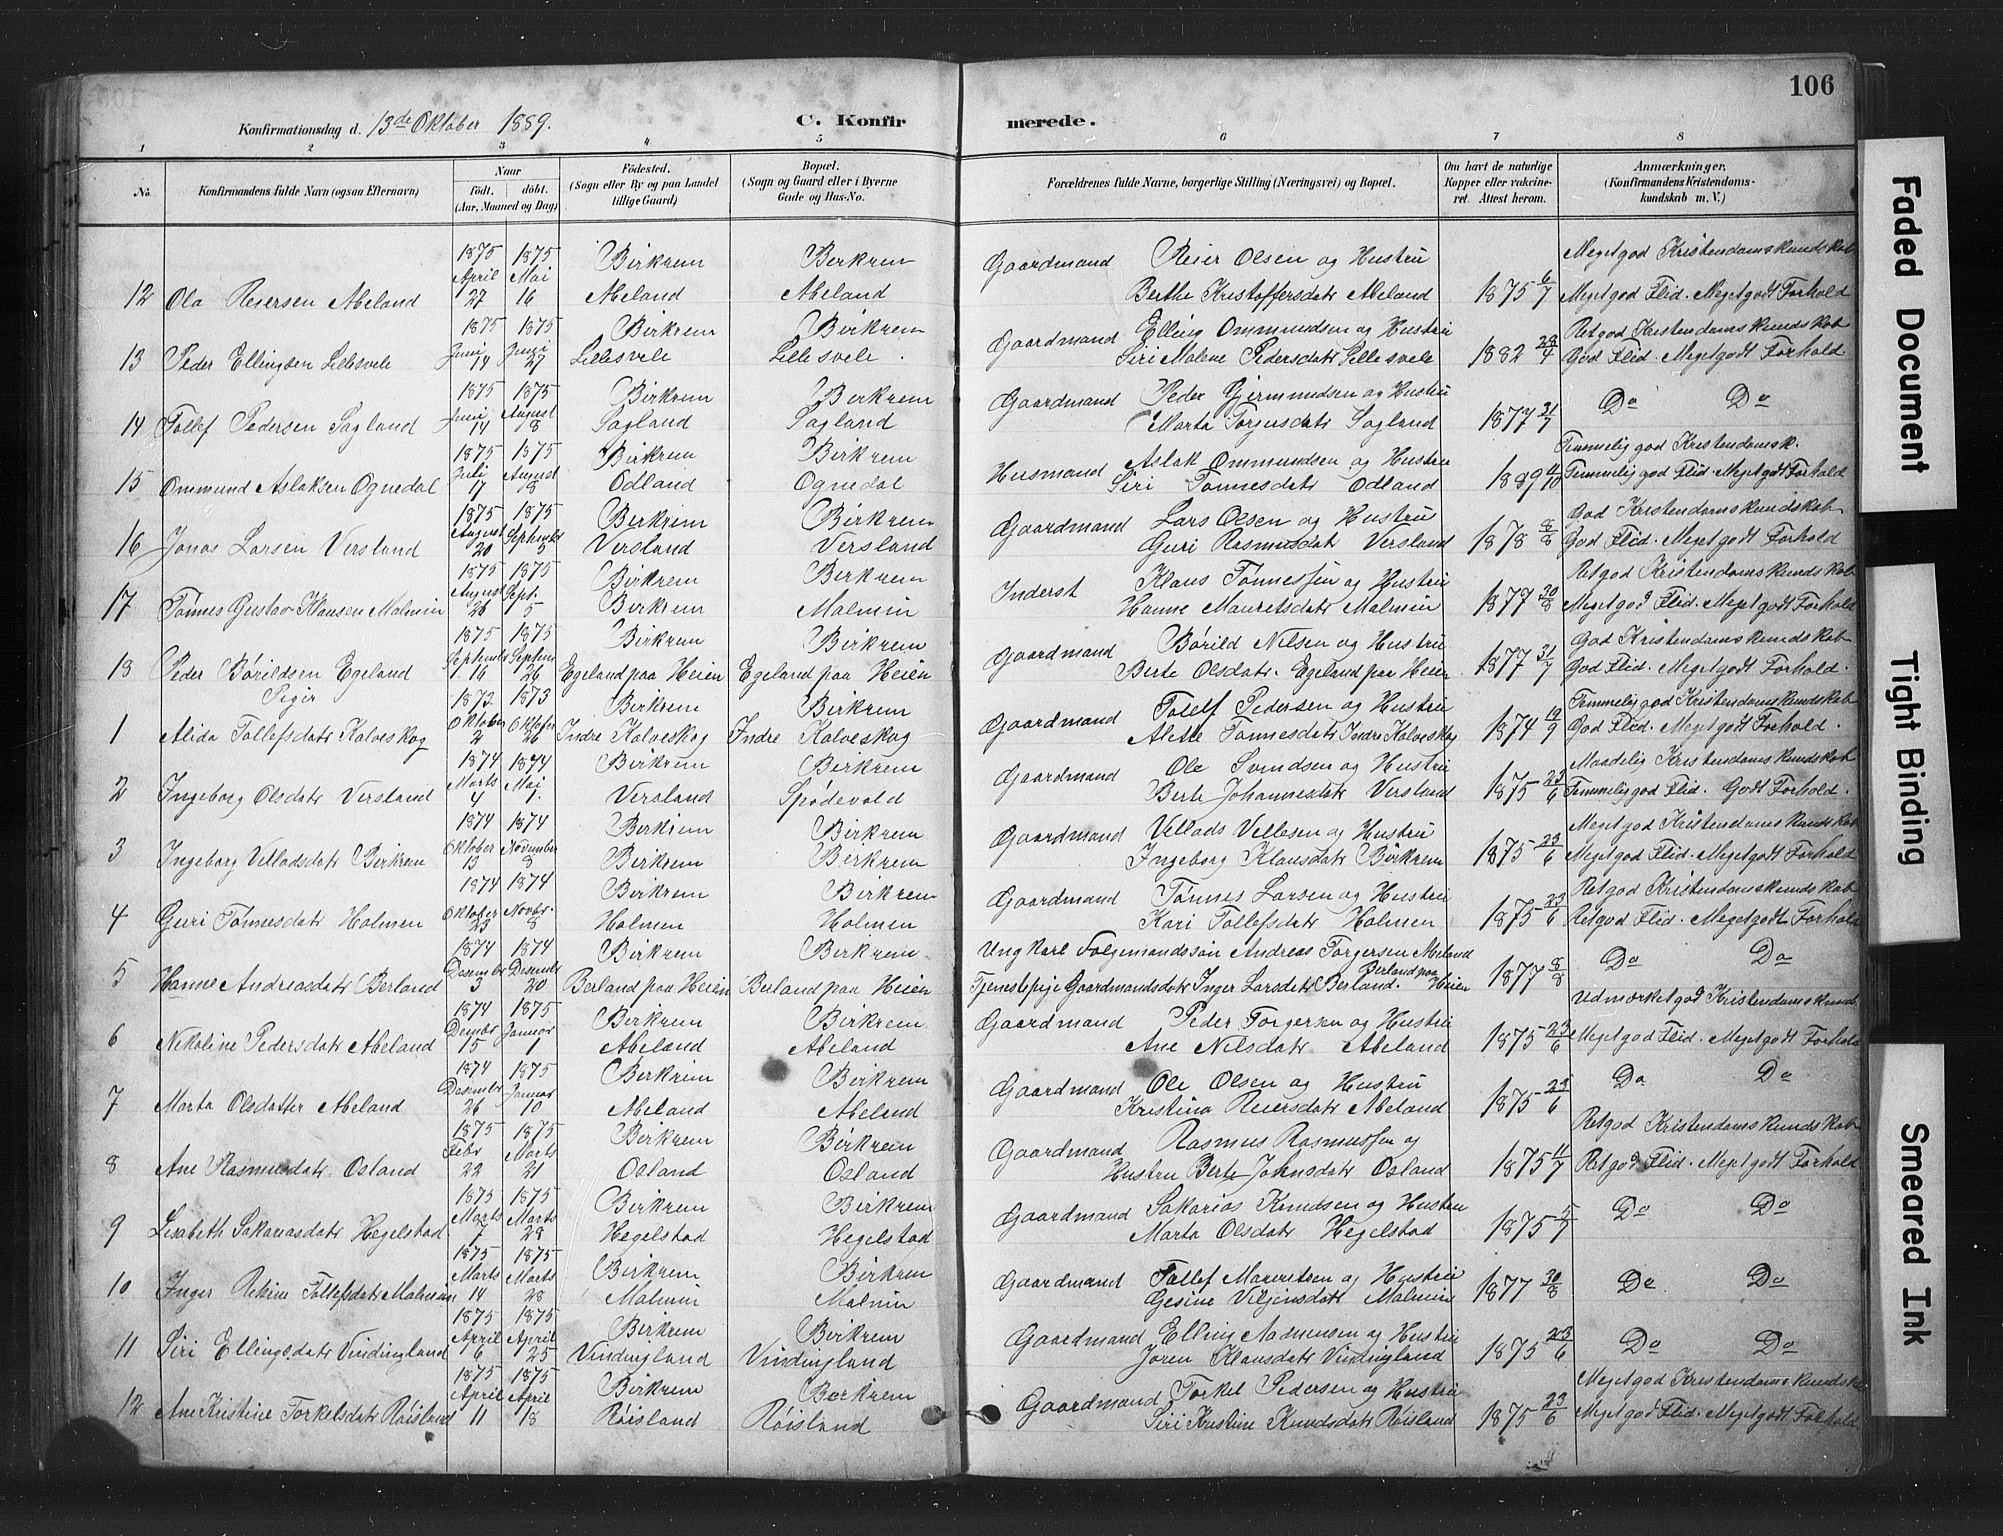 106
Konfirmationsdag d. 13de Oktober 1889.
C. Konfirmerede.
1 2 3 4 5 6 7 8
No. Konfirmandens fulde Navn (ogsaa Efternavn) Naar födt. döbt. (Aar, Maaned og Dag) Födested. (Sogn eller By og paa Landet tillige Gaard) Bopæl. (Sogn og Gaard eller i Byerne Gade og Hus-No. Forældrenes fulde Navne, borgerlige Stilling (Næringsvei) og Bopæl. Om havt de naturlige Kopper eller vakcineret. Attest herom. Anmærkninger. (Konfirmandens Kristendomskundskab m. V.)
1875 1875 Birkrem Birkrem Gaardmand Reier Olsen og Hustru Megetgod Kristendomskundskab
12 Ola Reiersen Abeland April 27 Mai 16 Abeland Abeland Berthe Kristoffersdatr Abeland 1875 6/7 Megetgod Flid. Megetgodt Forhold
1875 1875 Birkrem Birkrem Gaardmand Elling Ommundsen og Hustru Retgod Kristendomskundskab
13 Peder Ellingsen Lillesvele Juni 14 Juni 27 Lillesvele Lillesvele. Siri Malene Pedersdatr Lillesvele 1882 28/4 God Flid. Megetgodt Forhold
1875 1875 Birkrem Birkrem Gaardmand Peder Gjermundsen og Hustru Do Do
14 Tollef Pedersen Sagland Juni 14 August 8 Sagland Sagland Marta Torgersdatr Sagland 1877 31/7
1875 1875 Birkrem Birkrem Husmand Aslak Ommundsen og Hustru Temmelig god Kristendomsk.
15 Ommund Aslaksen Ognedal Juli 17 August 8 Odland Ognedal Siri Tönnesdatr Odland 1889 /10 Temmelig god Flid. Megetgodt Forhold
1875 1875 Birkrem Birkrem Gaardmand Lars Olsen og Hustru God Kristendomskundskab
16 Jonas Larsen Versland August 20 September 5 Versland Versland Guri Rasmusdatr Versland 1878 8/8 God Flid. Megetgodt Forhold
1875 1875 Birkrem Birkrem Inderst Klaus Tönnessen og Hustru Retgod Kristendomskundskab
17 Tönnes Gustav Klausen Malmin August 26 Sept. 5 Birkrem Malmin Hanne Mauretsdatr Malmin 1877 20/8 Megetgod Flid. Megetgodt Forhold
1875 1875 Birkrem Birkrem Gaardmand Börild Nilsen og Hustru God Kristendomskundskab
18 Peder Börildsen Egeland September 16 September 26 Egeland paa Heien Egeland paa Heien Berte Olsdatr. Egeland paa Heien 1877 31/7 God Flid. Megetgodt Forhold.
Piger
1873 1873 Birkrem Birkrem Gaardmand Tolelf Pedersen og Hustru Temmelig god Kristendomskundskab
1 Alida Tollefsdatr Kalveskog Oktober 2 Oktober 26 Indre Kalveskog Indre Kalveskog Alette Tönnesdatr Indre Kalveskog 1874 19/9 God Flid. Megetgodt Forhold.
1874 1874 Birkrem Birkrem Gaardmand Ole Svendsen og Hustru Maadelig Kristendomskundskab
2 Ingeborg Olsdatr Versland Marts 4 Mai 1. Versland Spödevold Berte Johannesdatr Versland 1875 23/6 Temmelig god Flid. Godt Forhold.
1874 1874 Birkrem Birkrem Gaardmand Vellads Vellesen og Hustru Megetgod Kristendomskundskab
3 Ingeborg Velladsdatr Birkrem Oktober 13 November 8 Birkrem Birkrem Ingeborg Klausdatr Birkrem 1875 23/6 Megetgod Flid. Megetgodt Forhold
1874 1874 Birkrem Birkrem Gaardmand Tönnes Larsen og Hustru Retgod Kristendomskundskab
4 Guri Tönnesdatr Holmen Oktober 23 Novbr. 8 Holmen Holmen Kari Tollefsdatr Holmen 1875 23/6 Retgod Flid. Megetgodt Forhold
1874 1874 Birkrem Birkrem. Ungkarl Folgemandssön Andreas Torgersen Berland paa Heien Do Do
5 Hanne Andreasdatr Berland Desember 3 Desember 20 Berland paa Heien Berland paa Heien Tjenestepige Gaardmandsdatr Inger Larsdatr Berland. 1877 8/8
1874 1875 Birkrem Birkrem Gaardmand Peder Torgersen og Hustru Udmærketgod Kristendomskunds
6 Nikoline Pedersdatr Abeland Desmbr 15 Januar 1 Abeland Abeland Ane Nilsdatr Abeland 1875 23/6 Megetgod Flid. Megetgodt Forhold
1874 1875 Birkrem Birkrem Gaardmand Ole Olsen og Hustru Do Do
7 Marta Olsdatter Abeland Desember 26 Januar 10 Abeland Abeland Kristina Reiersdatr Abeland 1875 23/6
1875 1875 Birkrem Birkrem Gaardmand Rasmus Rasmussen og Retgod Kristendomskundskab
8 Ane Rasmusdatr Osland Febr 22 Marts 21 Osland Osland Hustru Berte Johnsdatr Osland 1875 11/7 Retgod Flid. Megetgodt Forhold
1875 1875 Birkrem Birkrem Gaardmand Sakarias Knudsen og Hustru Do Do
9 Lisabeth Sakariasdatr Hegelstad Marts 7 Marts 28 Hegelstad Hegelstad Marta Olsdatr Hegelstad 1875 5/7
1875 1875 Birkrem Birkrem Gaardmand Tollef Mauritsen og Hustru Do Do
10 Inger Rikine Tollefsdatr Malmin Marts 14 Marts 28 Malmin Malmin Gesine Viljensdatr Malmin 1877 30/8
1875 1875 Birkrem Birkrem Gaardmand Elling Aasmunsen og Hustru Do Do
11 Siri Ellingsdatr Vindingland April 6 April 25 Vindingland Vindingland Joren Klausdatr Vindingland 1875 23/6
1875 1875 Birkrem Birkrem Gaardmand Torkel Pedersen og Hustru Megetgod Kristendomskundskab
12 Ane Kristine Torkelsdatr Röisland April 11 April 18 Röisland Röisland Siri Kristine Knudsdatr Röisland 1875 23/6 Megetgod Flid. Megetgodt Forhold
Faded Document
Tight Binding
Smeared Ink